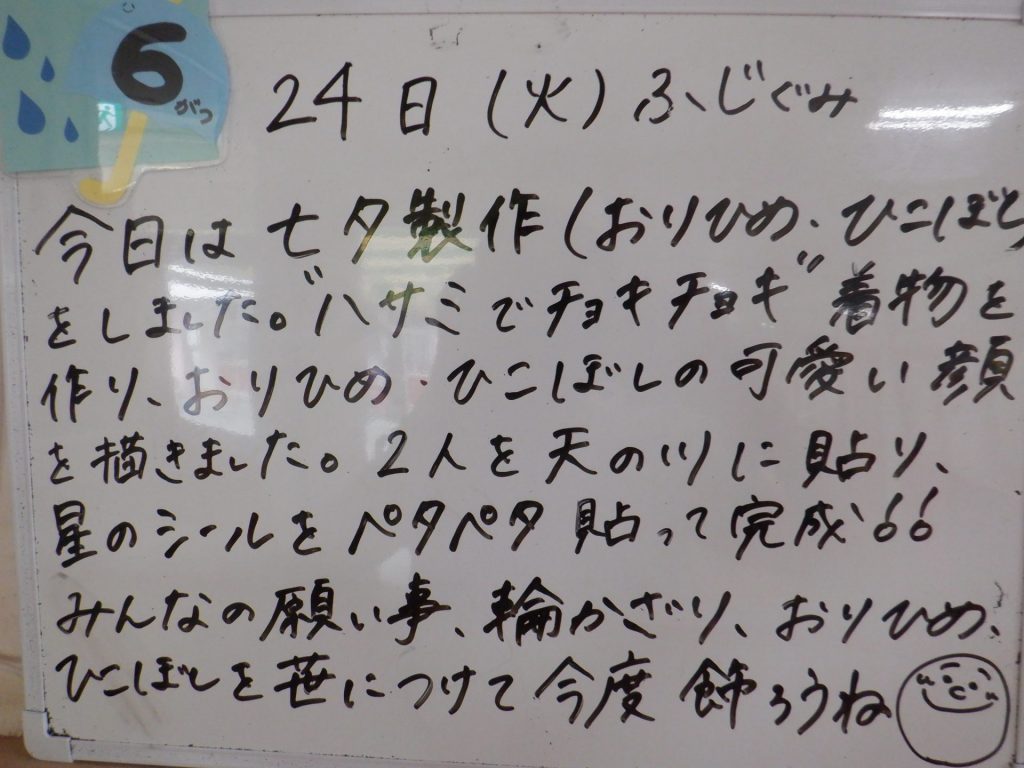 6
がつ
24日(火)ふじぐみ
今日は七夕製作(おりひめ・ひこぼし)
をしました。"ハサミでチョキチョキ"着物を
作り、おりひめ・ひこぼしの可愛い顔
を描きました。2人を天の川に貼り、
星のシールをペタペタ貼って完成!!
みんなの願い事、輪かざり、おりひめ、
ひこぼしを笹につけて今度飾ろうね